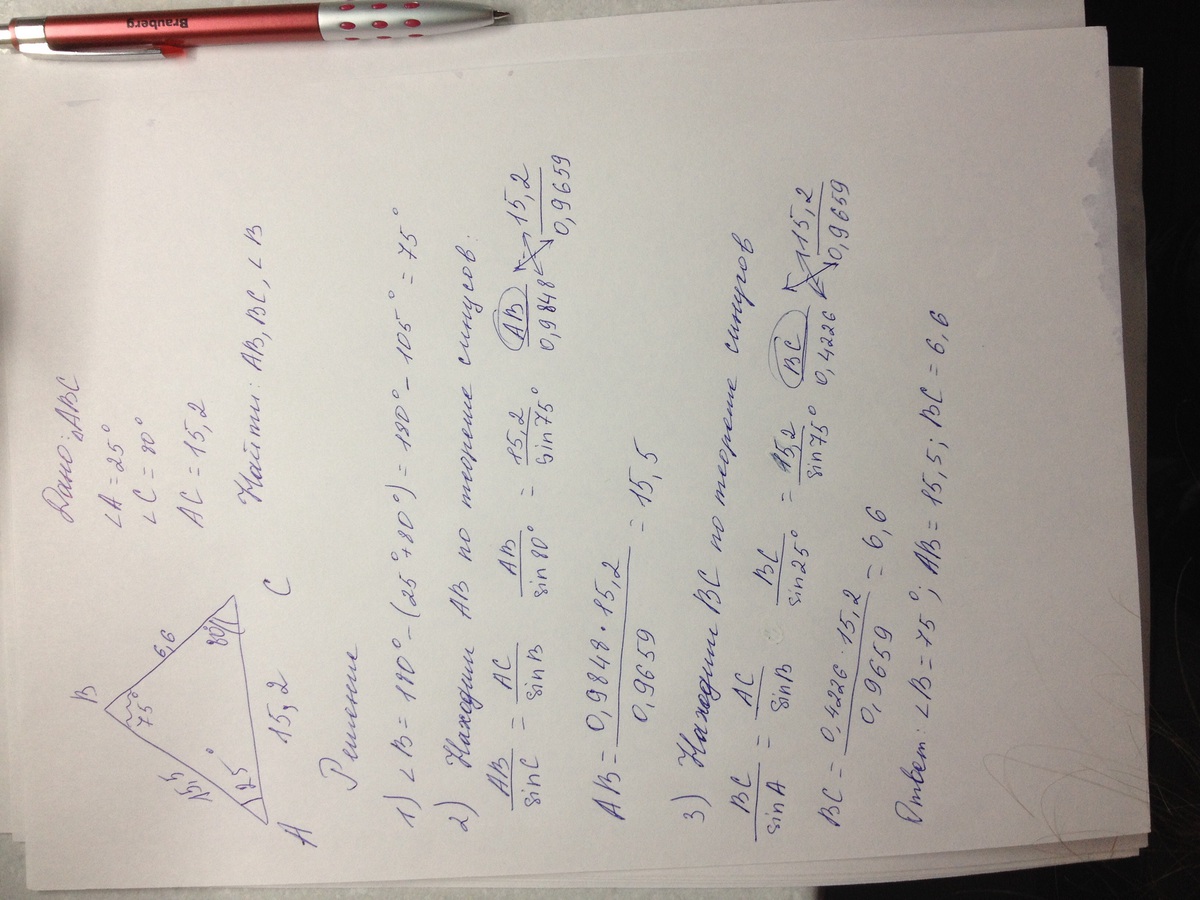 Brauberg
Дано: △ABC
∠A = 25°
∠C = 80°
AC = 15,2
Найти: AB, BC, ∠B
B
75°
15,5
6,6
25°
80°
A
15,2
C
Решение
1) ∠B = 180° - (25° + 80°) = 180° - 105° = 75°
2) Находим AB по теореме синусов:
AB/sinC = AC/sinB AB/sin80° = 15,2/sin75° AB/0,9848 15,2/0,9659
AB = 0,9848 · 15,2/0,9659 = 15,5
3) Находим BC по теореме синусов
BC/sinA = AC/sinB BC/sin25° = 15,2/sin75° BC/0,4226 15,2/0,9659
BC = 0,4226 · 15,2/0,9659 = 6,6
Ответ: ∠B = 75°; AB = 15,5; BC = 6,6